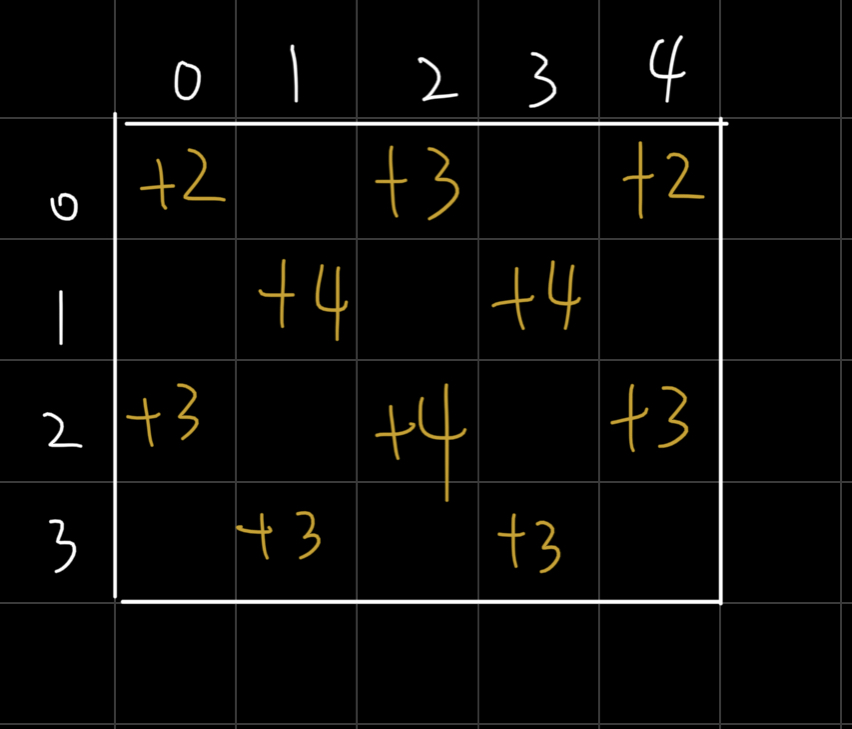 0 1 2 3 4
0 +2 +3 +2
1 +4 +4
2 +3 +4 +3
3 +3 +3